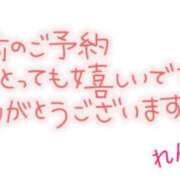 前のご予約
とっても嬉しいで
りがとうございます
れん